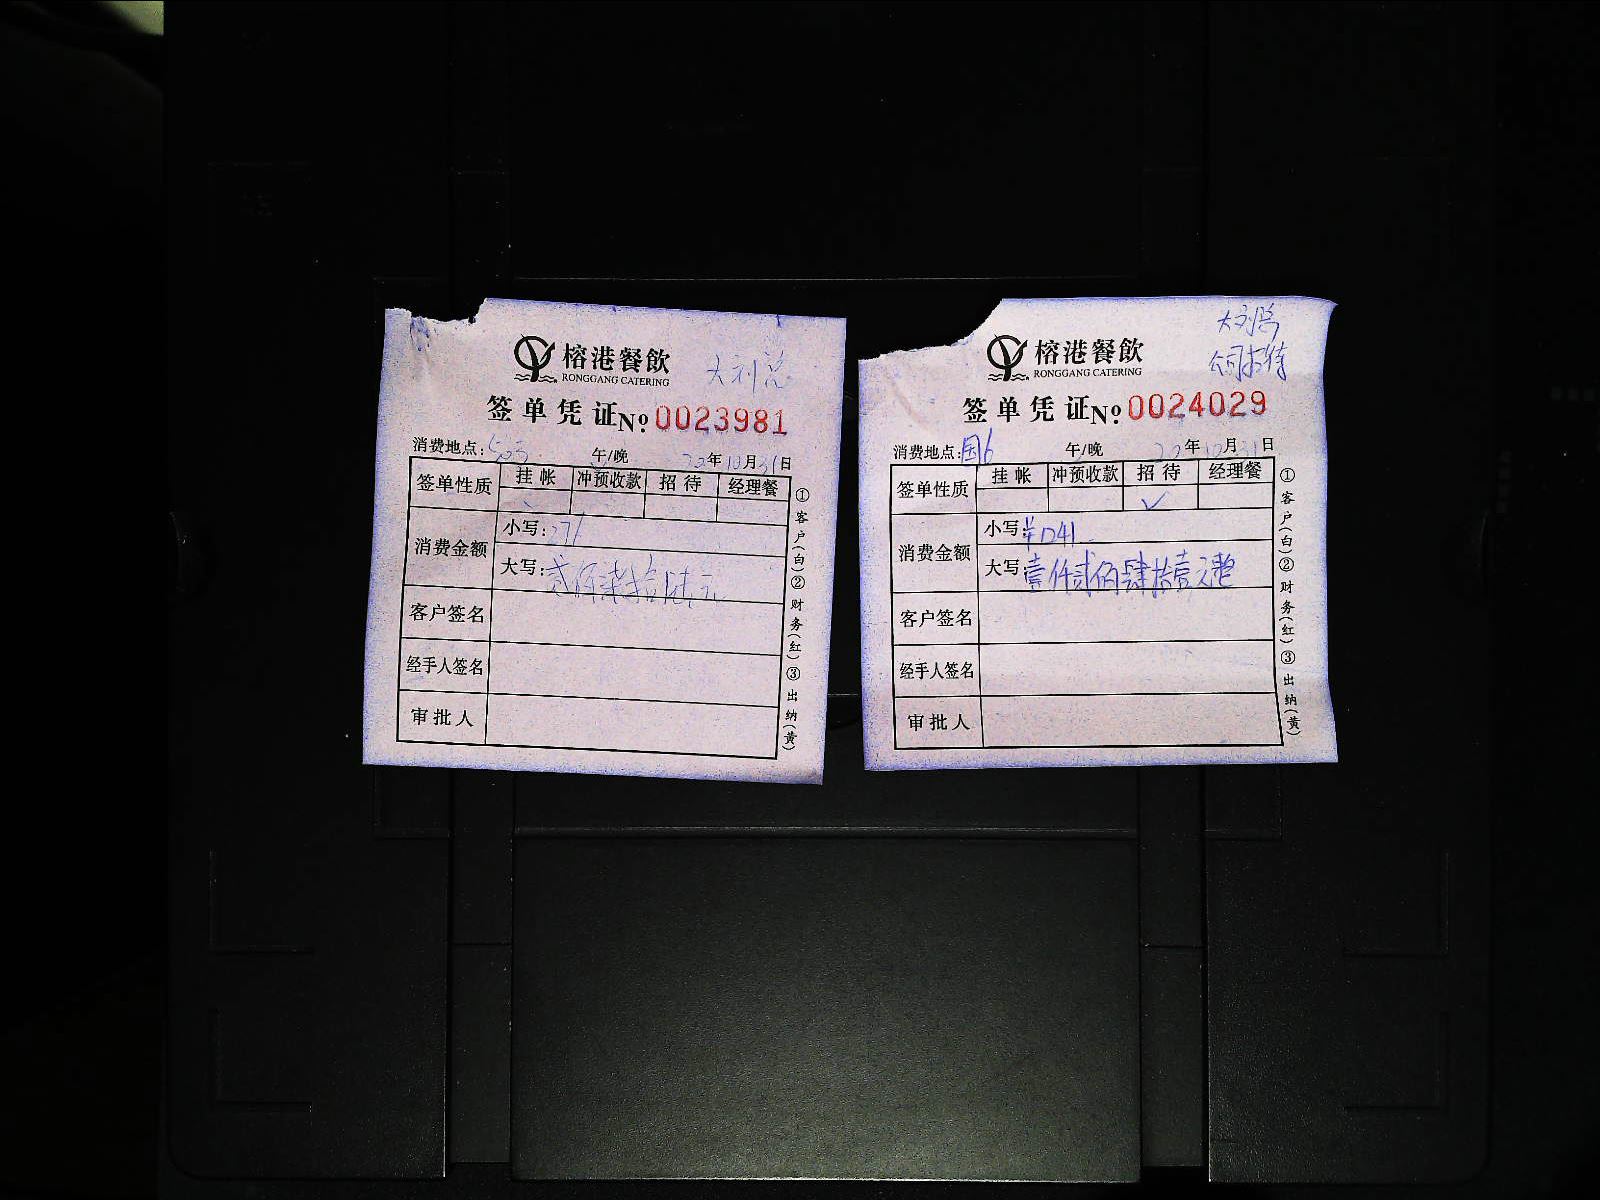 榕港餐飲
RONGGANG CATERING
大刘总
签单凭证No:0023981
消费地点:
午/晚 20年10月31日
签单性质 挂帐 冲预收款 招待 经理餐
消费金额 小写:276
大写:贰佰柒拾陆元
客户签名
经手人签名
审批人
①客户(白)②财务(红)③出纳(黄)
大刘总
公司招待
榕港餐飲
RONGGANG CATERING
签单凭证No:0024029
消费地点:国6 午/晚 20年10月31日
签单性质 挂帐 冲预收款 招待 经理餐
✓
消费金额 小写:¥1241
大写:壹仟贰佰肆拾壹元整
客户签名
经手人签名
审批人
①客户(白)②财务(红)③出纳(黄)